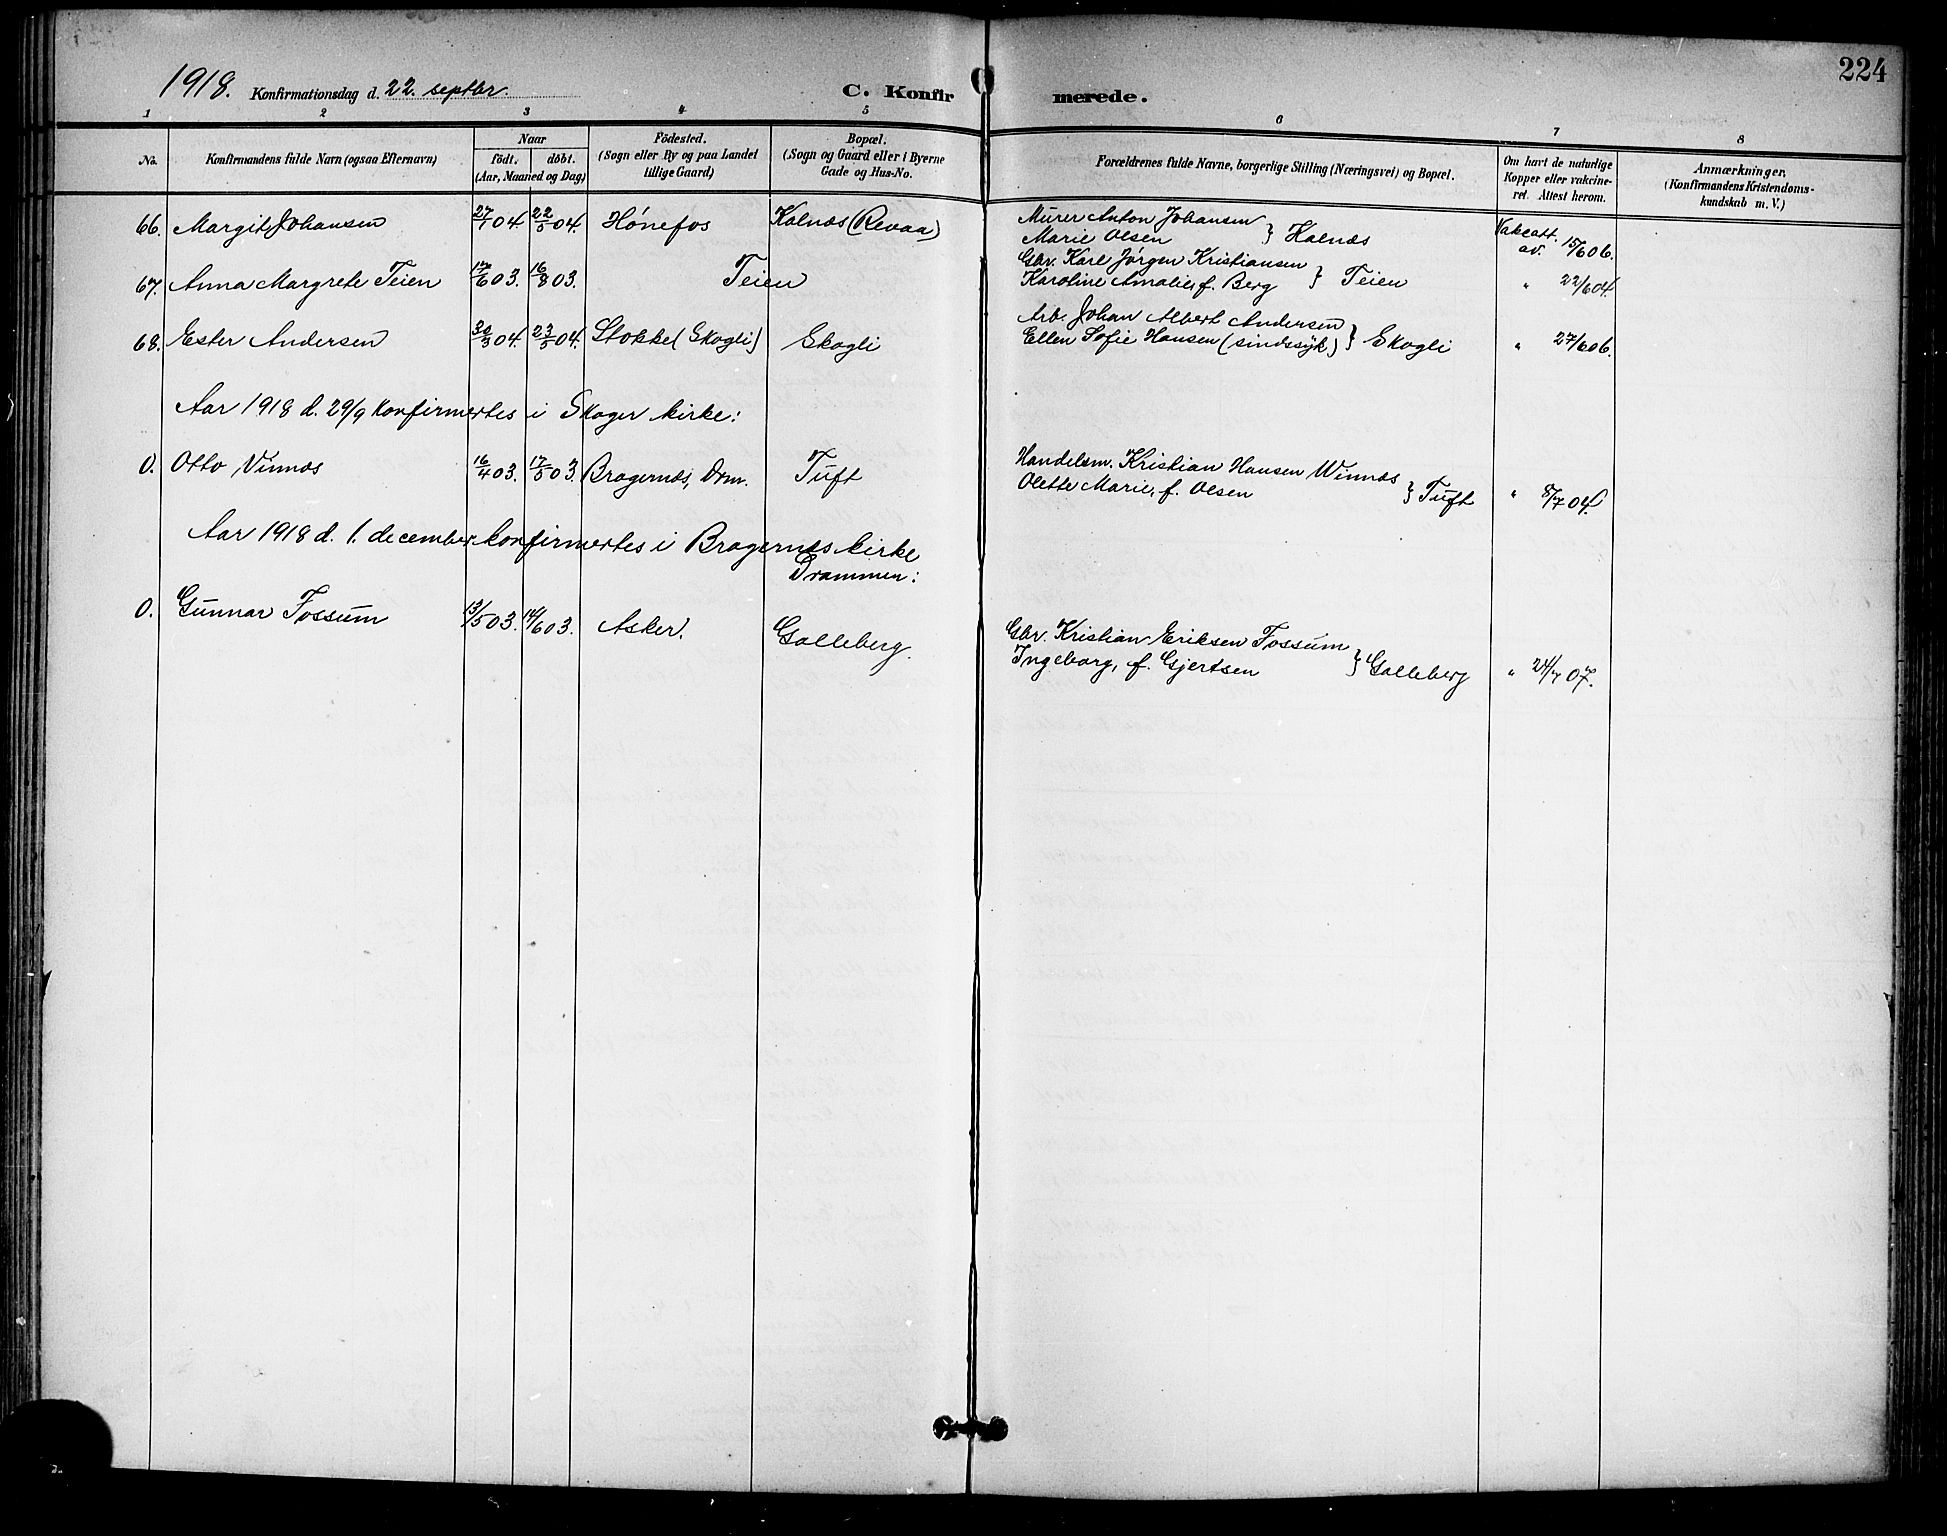 224
1918. Konfirmationsdag d. 22. septbr.
C. Konfirmerede.
1 2 3 4 5 6 7 8
No.
Konfirmandens fulde Navn (ogsaa Efternavn)
Naar
født. døbt.
(Aar, Maaned og Dag)
Födested.
(Sogn eller By og paa Landet
tillige Gaard)
Bopæl.
(Sogn og Gaard eller i Byerne
Gade og Hus-No.
Forældrenes fulde Navne, borgerlige Stilling (Næringsvei) og Bopæl.
Om havt de naturlige
Kopper eller vakcine-
ret. Attest herom.
Anmærkninger.
(Konfirmandens Kristendoms-
kundskab m. V.)
66. Margit Johansen 27/1 04. 22/5 04. Hönefos Holnæs (Revaa) Murer Anton Johansen
Marie Olsen } Holnæs Vakcatt. av. 15/6 06.
67. Anna Margrete Teien 12/6 03. 16/8 03. Teien Gbr. Karl Jörgen Kristiansen
Karoline Amalie, f. Berg } Teien " 22/6 04.
68. Ester Andersen 30/3 04. 23/5 04. Stokke (Skogli) Skogli Arb. Johan Albert Andersen
Ellen Sofie Hansen (sindssyk) } Skogli " 27/6 06.
Aar 1918 d. 29/9 konfirmertes i Skoger kirke:
0. Otto Vinnæs 16/4 03. 17/5 03. Bragernes, Drm. Tuft Handelsm. Kristian Hansen Winnæs
Olette Marie, f. Olsen } Tuft " 8/7 04.
Aar 1918 d. 1. december konfirmertes i Bragernæs kirke
Drammen:
0. Gunnar Fossum 13/5 03. 14/6 03. Asker. Galleberg. Gbr. Kristian Eriksen Fossum
Ingeborg, f. Gjertsen } Galleberg " 24/7 07.